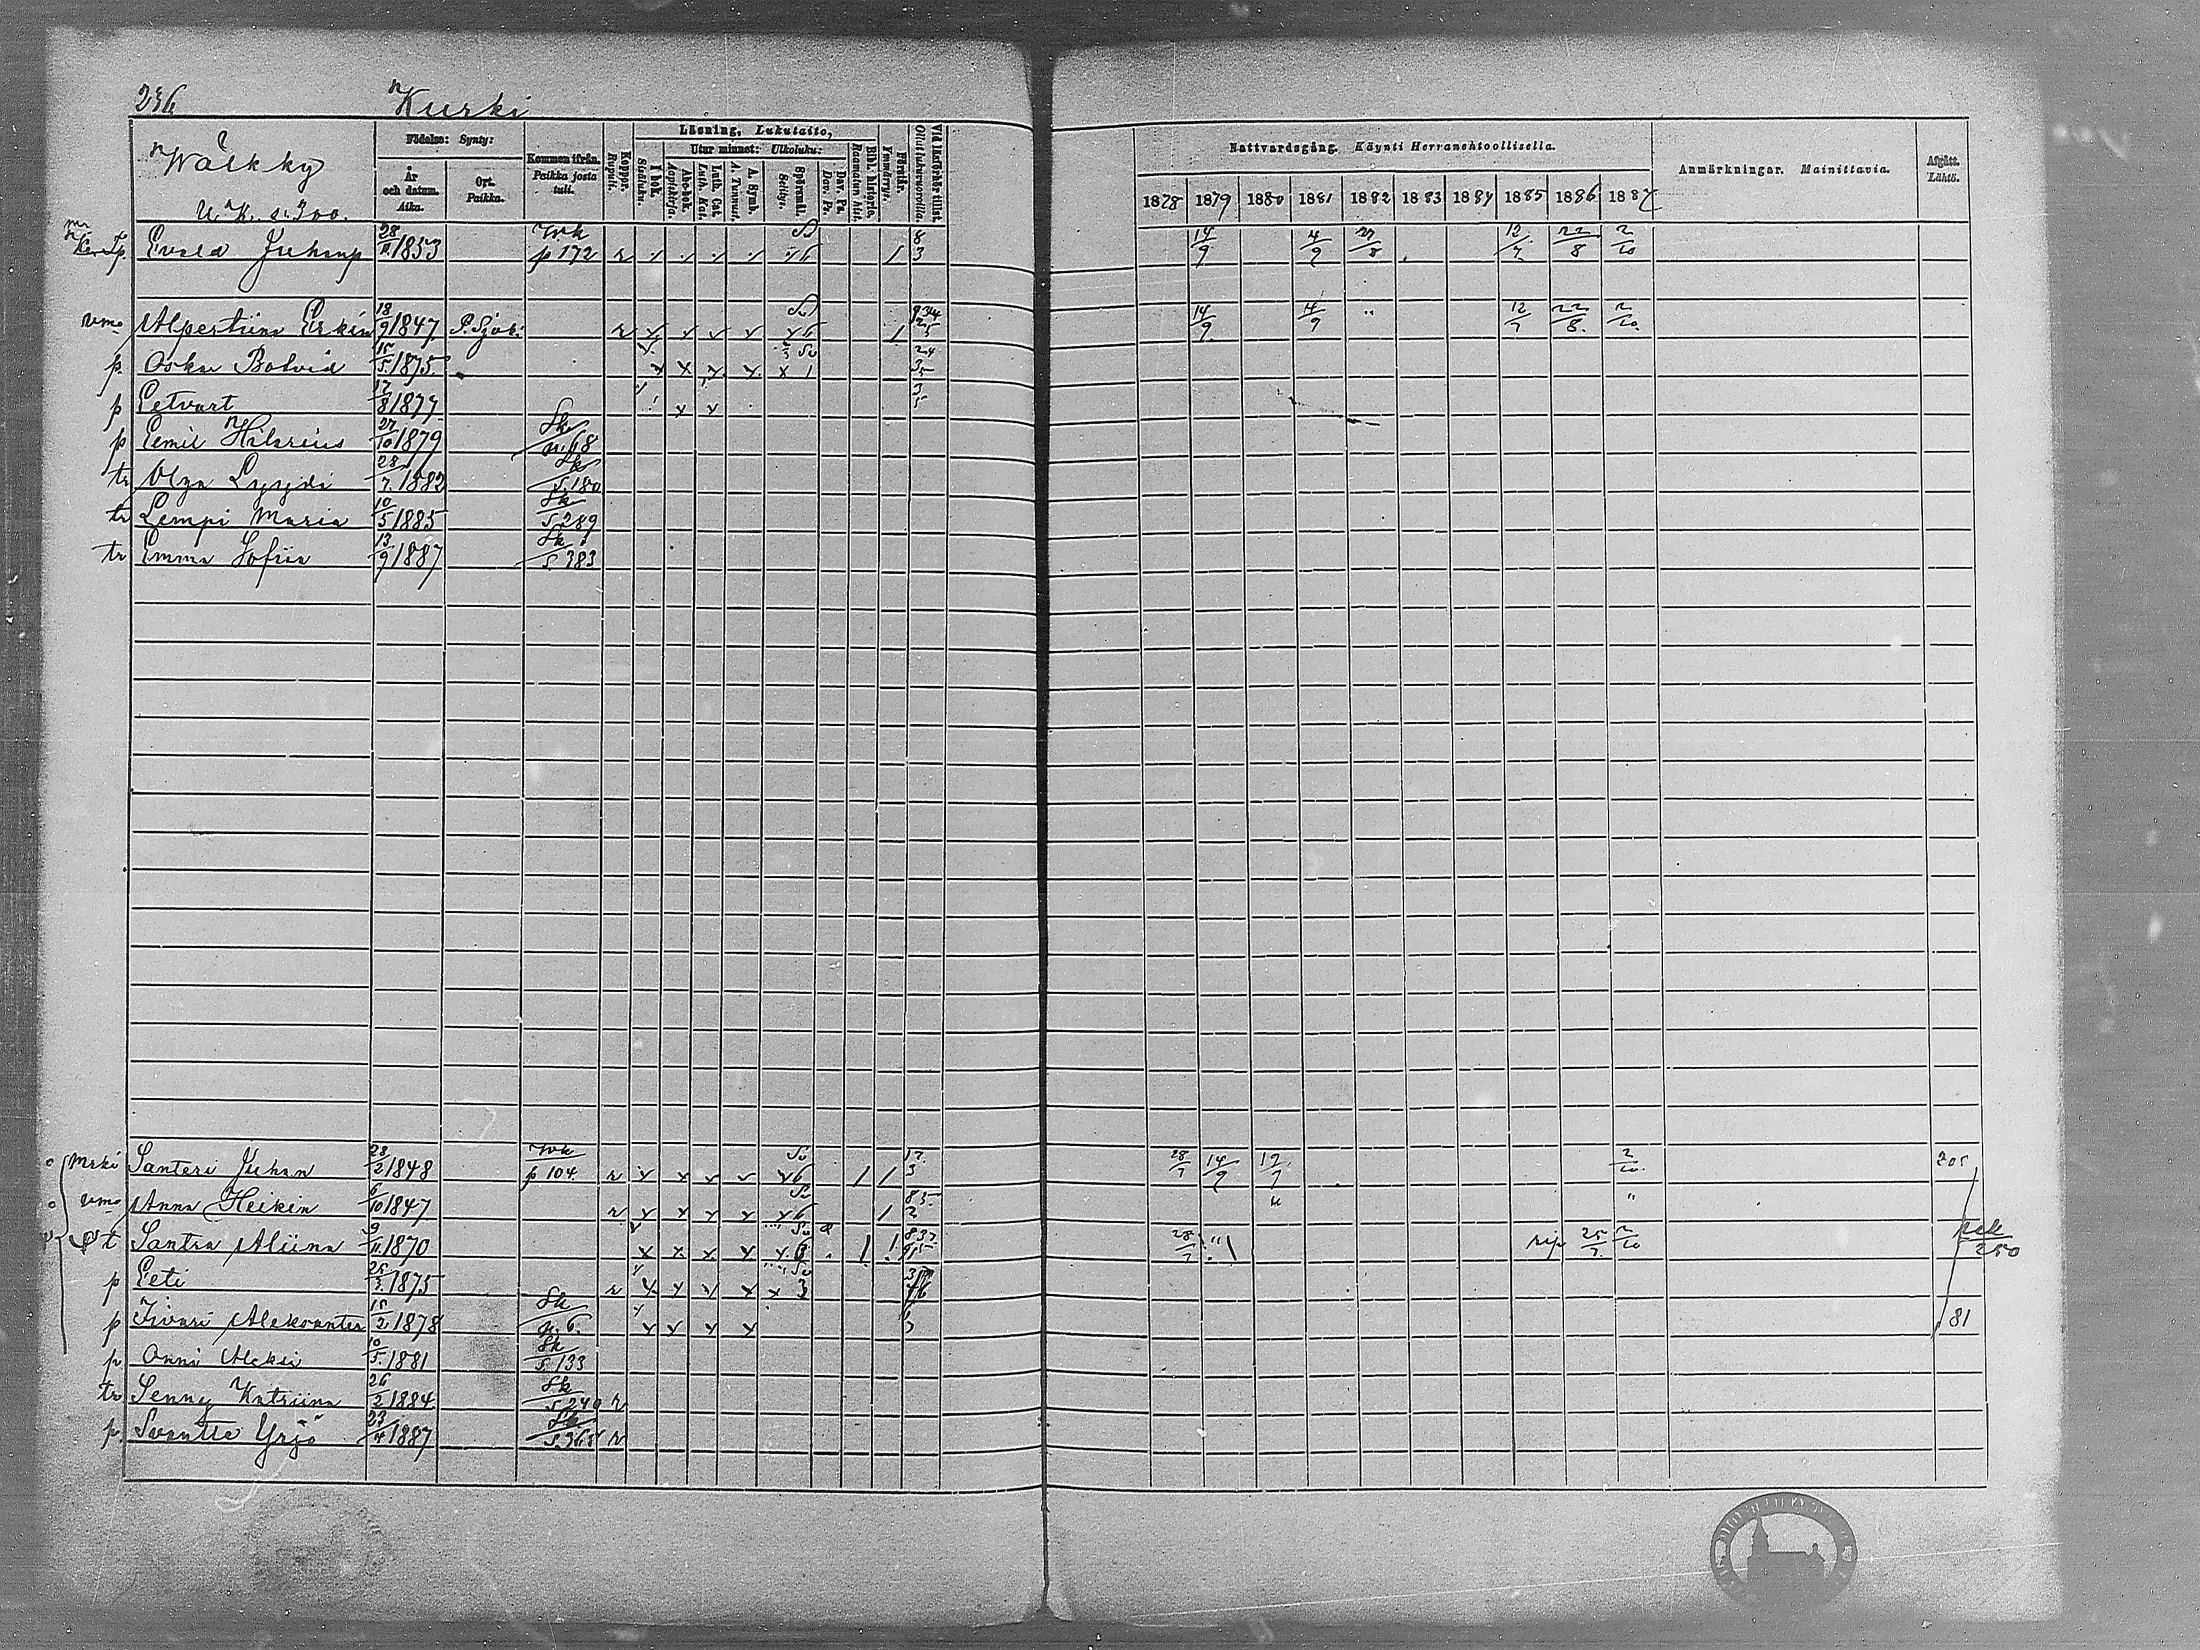 236 Kurki
Wälkky
Födelse: Synty:
År och datum. Aika.
Ort. Paikka.
Kommen ifrån. Paikka josta tuli.
Koppor. Rupuli.
Läsning, Lukutaito,
I bok. Sisäluku.
Utur minnet: Ulkoluku:
Abc-bok. Aapiskirja.
Luth. Cat. Luth. Kat.
A. Symb. A. Tunnust.
Spörsmål. Selitys.
Dav. Ps. Dav. Ps.
Bibl. historia. Raamatun hist.
Förstår. Ymmärrys.
Vid läsförhör tillst. Ollut lukuwuoroilla.
Nattvardsgång. Käynti Herranehtoollisella.
1878 1879 1880 1881 1882 1883 1884 1885 1886 1887
Anmärkningar. Mainittavia.
Afgått. Lähtö.
Evald Juhanp 28/11 1853 p 172 r 8 3 14/9 4/9 27/8 12/7 22/8 2/10
vmo Alpertiina Erkin 18/9 1847 r 14/9 4/9 " 12/7 22/8 2/10
p. Oskar Botvid 15/5 1875
p Eetvart 17/8 1877 3 5
p Eemil Hilarius 27/10 1879 Sk n. 68
tr Olga Lyydi 28/7 1882 Sk s. 180
tr Lempi Maria 10/5 1885 Sk s. 289
tr Emma Sofiia 13/9 1887 Sk s. 383
Santeri Juhan 28/2 1848 p 104 r 17 3 28/7 14/9 17/7 2/10 205
vmo Anna Heikin 6/10 1847 r "
t Santra Aliina 9/11 1870 28/7 " rip 25/7 2/10 250
p Eeti 25/3 1875 r
p Iivari Aleksanter 15/2 1878 Sk n. 6. 81
p. Onni Aleksi 10/5 1881 Sk s. 133
tr Senny Katriina 26/2 1884 Sk s. 240 r
p. Svantte Yrjö 23/4 1887 Sk s. 365 r